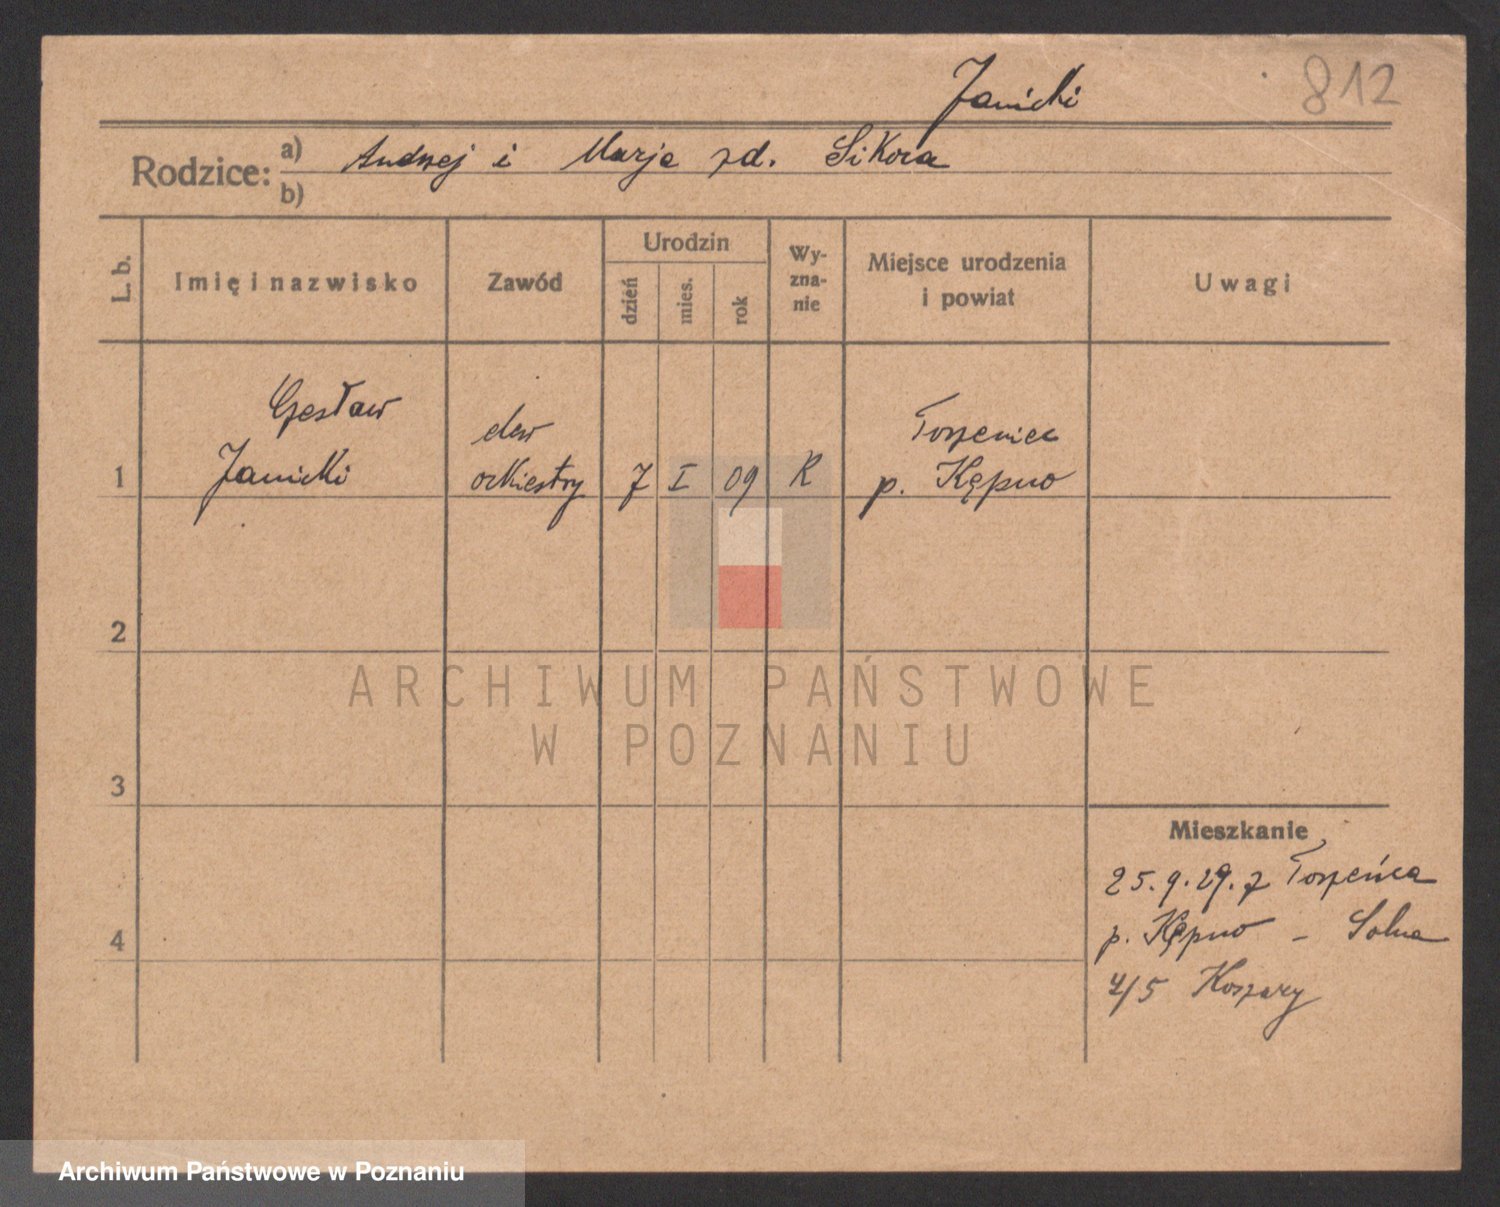 Janicki
812
Rodzice:
a) Andrzej i Marja zd. Sikora
b)
L. b.
Imię i nazwisko
Zawód
Urodzin
dzień
mies.
rok
Wy-
zna-
nie
Miejsce urodzenia
i powiat
Uwagi
Czesław
Janicki
elew
orkiestry
7 I 09 R
Torzeniec
p. Kępno
1
2
3
4
ARCHIWUM PAŃSTWOWE
W POZNANIU
Mieszkanie
25.9.29. z Torzeńca
p. Kępno - Solna
4/5 Koszary
Archiwum Państwowe w Poznaniu